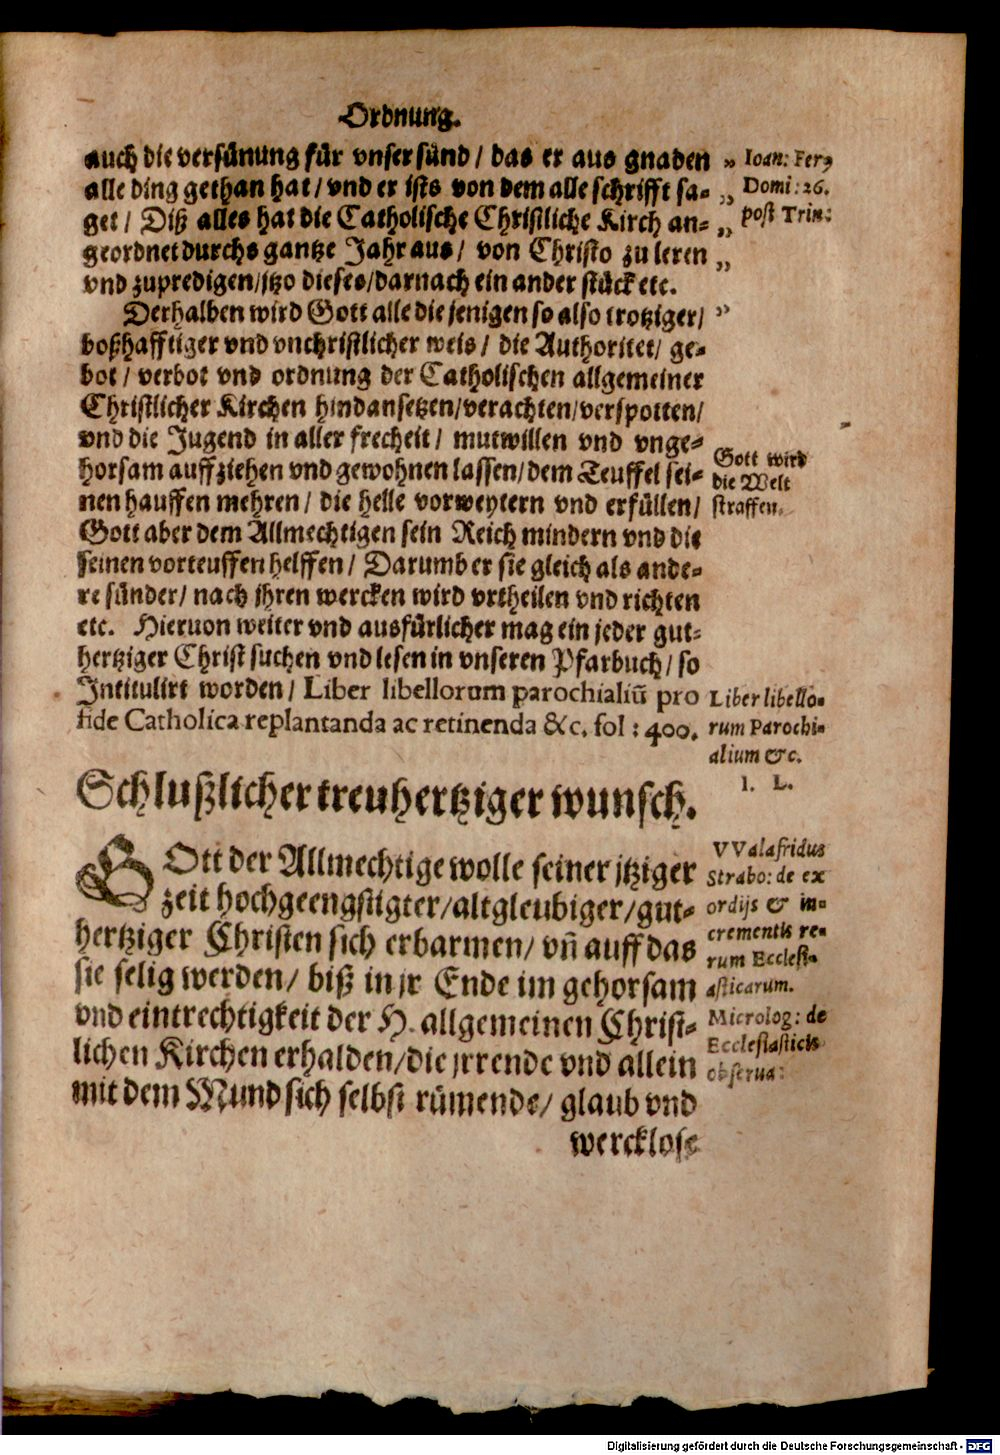 Ordnung.
auch die versünung für vnser sünd / das er aus gnaden
alle ding gethan hat / vnd er ists von dem alle schrifft sa-
get / Diß alles hat die Catholische Christliche Kirch an-
geordnet durchs gantze Jahr aus / von Christo zu leren
vnd zupredigen / jtzo dieses / darnach ein ander stück etc.
Derhalben wird Gott alle die jenigen so also trotziger /
boßhafftiger vnd vnchristlicher weis / die Authoritet / ge-
bot / verbot vnd ordnung der Catholischen allgemeiner
Christlicher Kirchen hindansetzen / verachten / verspotten /
vnd die Jugend in aller frecheit / mutwillen vnd vnge-
horsam auffziehen vnd gewohnen lassen / dem Teuffel sei-
nen hauffen mehren / die helle vorweytern vnd erfüllen /
Gott aber dem Allmechtigen sein Reich mindern vnd die
seinen vorteuffen helffen / Darumb er sie gleich als ande-
re sünder / nach jhren wercken wird vrtheilen vnd richten
etc. Hieruon weiter vnd ausfürlicher mag ein jeder gut-
hertziger Christ suchen vnd lesen in vnseren Pfarbuch / so
Intitulirt worden / Liber libellorum parochialiū pro
fide Catholica replantanda ac retinenda &c. fol : 400.
Schlußlicher treuhertziger wunsch.
GOtt der Allmechtige wolle seiner jtziger
zeit hochgeengstigter / altgleubiger / gut-
hertziger Christen sich erbarmen / vñ auff das
sie selig werden / biß in jr Ende im gehorsam
vnd eintrechtigkeit der H. allgemeinen Christ-
lichen Kirchen erhalden / die jrrende vnd allein
mit dem Mund sich selbst rümende / glaub vnd
wercklose
„ Ioan: Fer,
„ Domi: 26.
„ post Trin:
„
„
Gott wird
die Welt
straffen.
Liber libello-
rum Parochi-
alium &c.
I. L.
VValafridus
Strabo: de ex
ordijs & in-
crementis re-
rum Ecclesi-
asticarum.
Microlog: de
Ecclesiasticis
obserua:
Digitalisierung gefördert durch die Deutsche Forschungsgemeinschaft - DFG